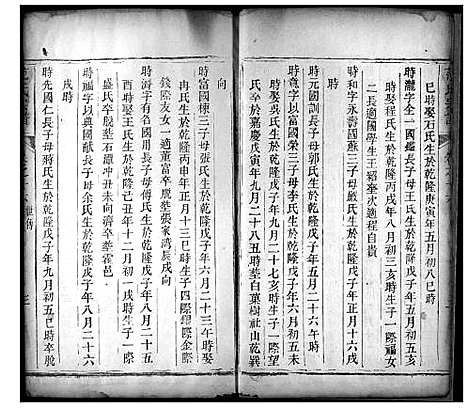 巳時娶石氏生於乾隆庚寅年五月初八巳時
時瀧字全一國鑑長子母王氏生於乾隆戊子年五月初五亥
時娶程氏生於乾隆丙戌年八月初三亥時生子一際福女
二長適國學生王紹奎次適程自貴
時和字永壽國蘇三子母嚴氏生於乾隆戊子年正月十六戌
時
時元國訓長子母郭氏生於乾隆戊子年五月二十六午時
時定一名以富國榮三子母李氏生於乾隆戊子年六月初五未
時娶吳氏生於乾隆戊子年九月二十七亥時生子一際望
氏卒於嘉慶戊寅年九月二十八丑時葬白菓樹社山乾巽
向
時富國棟三子母張氏生於乾隆戊子年六月二十三午時娶
冉氏生於乾隆丙申年正月十三巳時生子四際耀 際金際
錢際友女一適董富卒葬張家湾艮戌向
時濟字有名國用長子母傅氏生於乾隆戊子年八月二十五
酉時娶王氏生於乾隆己丑年十二月初一戌時生子一際
盛氏卒葬石灘冲未向濟卒葬霍邑
時大字典國獻長子母余氏生於乾隆戊子年八月二十六
戌時
時先國仁長子母蔣氏生於乾隆戊子年九月初五巳時卒歿